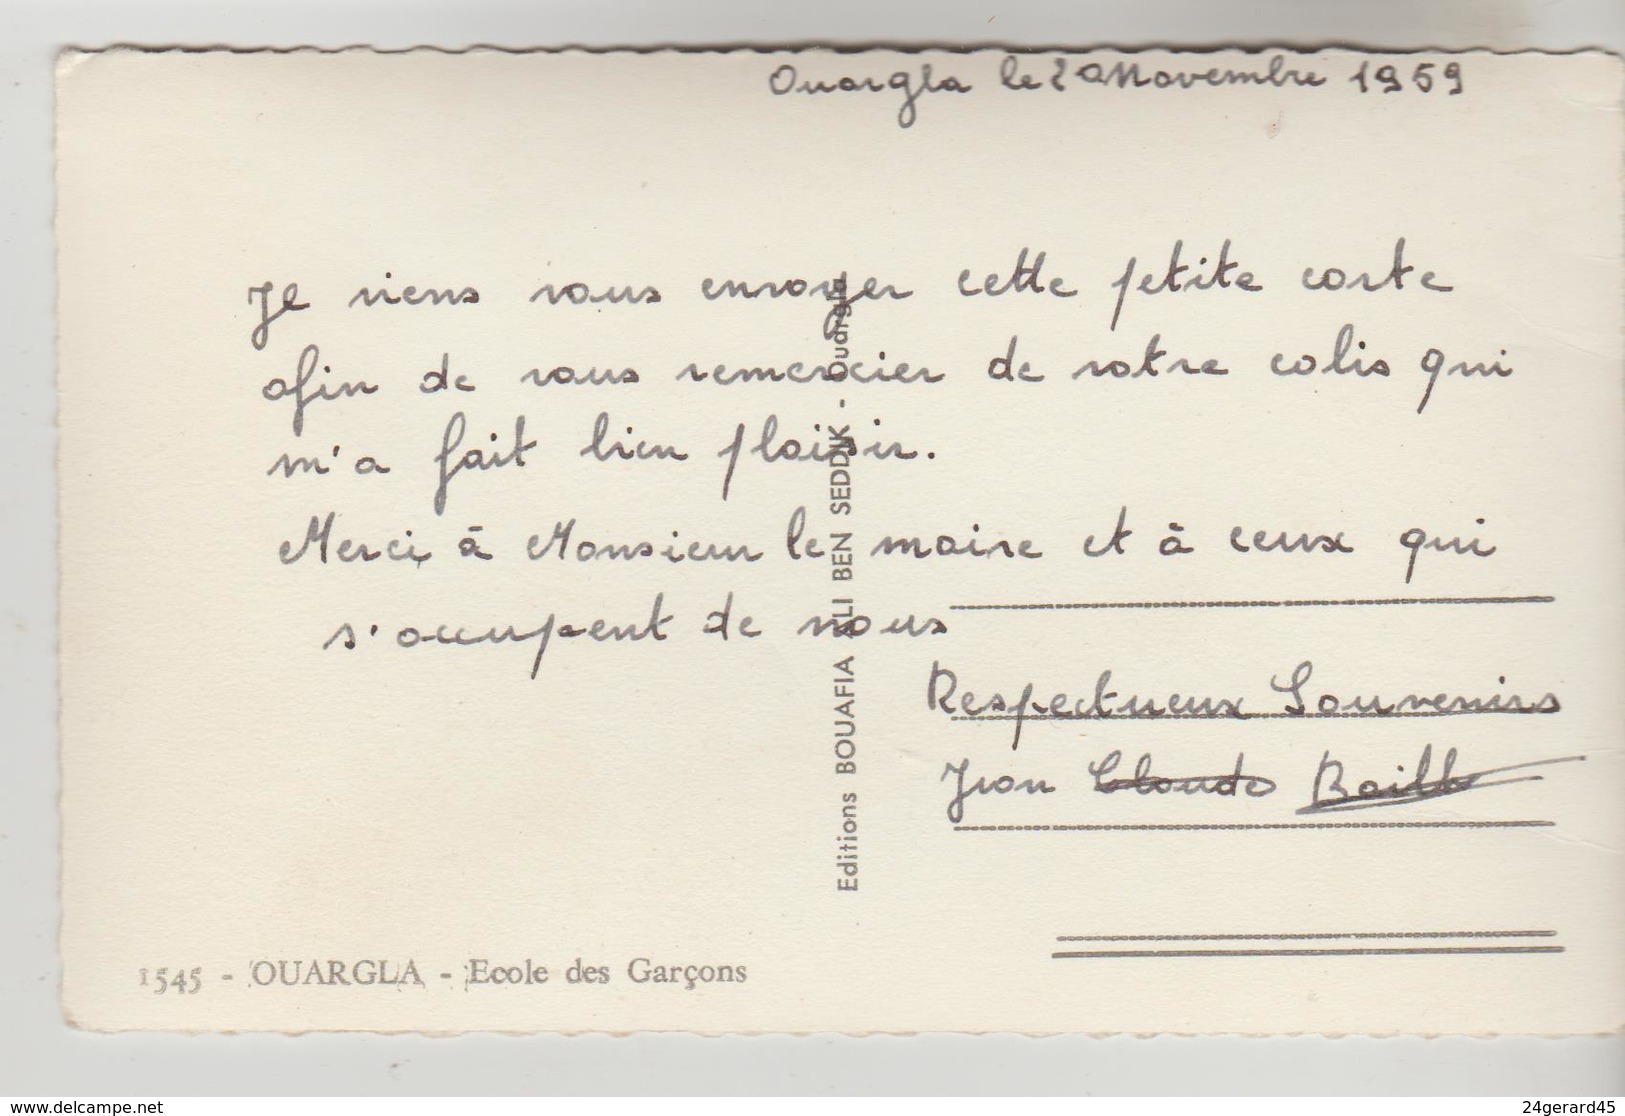 Ouargla le 20 Novembre 1959
Je viens vous envoyer cette petite carte
afin de vous remercier de votre colis qui
m'a fait bien plaisir.
Merci à Monsieur le maire et à ceux qui
s'occupent de nous
Respectueux Souvenirs
Jean Claude
Editions BOUAFIA ALI BEN SEDDIK - Ouargla
1545 - OUARGLA - Ecole des Garçons
www.delcampe.net
24gerard45